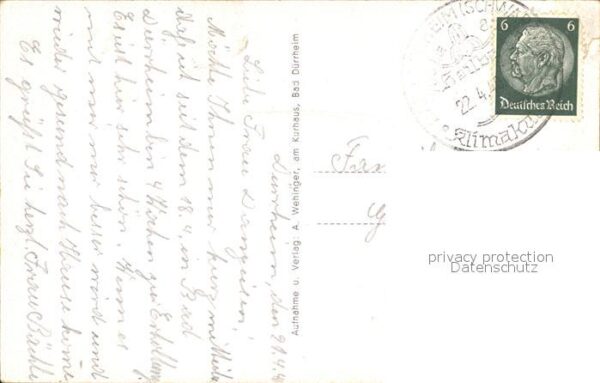 Dürrheim, den 21.4.4
Liebe Frau
Möchte Ihnen nur kurz mitteilen
daß ich seit dem 18.4. in Bad
Dürrheim bin 4 Wochen zur Erholung
Es ist hier sehr schön. Wenn es
mit mir nur besser wird und
wieder gesund nach Hause komme.
Es grüßt Sie herzl. Frau Bächle
Aufnahme u. Verlag: A. Wehinger, am Kurhaus, Bad Dürrheim
6 6
Deutsches Reich
HEIM (SCHWA
22.4.
Klimaku
privacy protection
Datenschutz